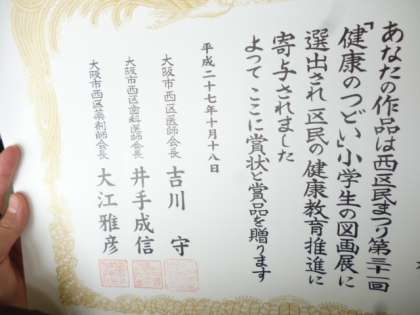 あなたの作品は西区民まつり第三十一回
「健康のつどい」小学生の図画展に
選出され区民の健康教育推進に
寄与されました
よつてここに賞状と賞品を贈ります
平成二十七年十月十八日
大阪市西区医師会長 吉川 守
大阪市西区歯科医師会長 井手成信
大阪市西区薬剤師会長 大江雅彦